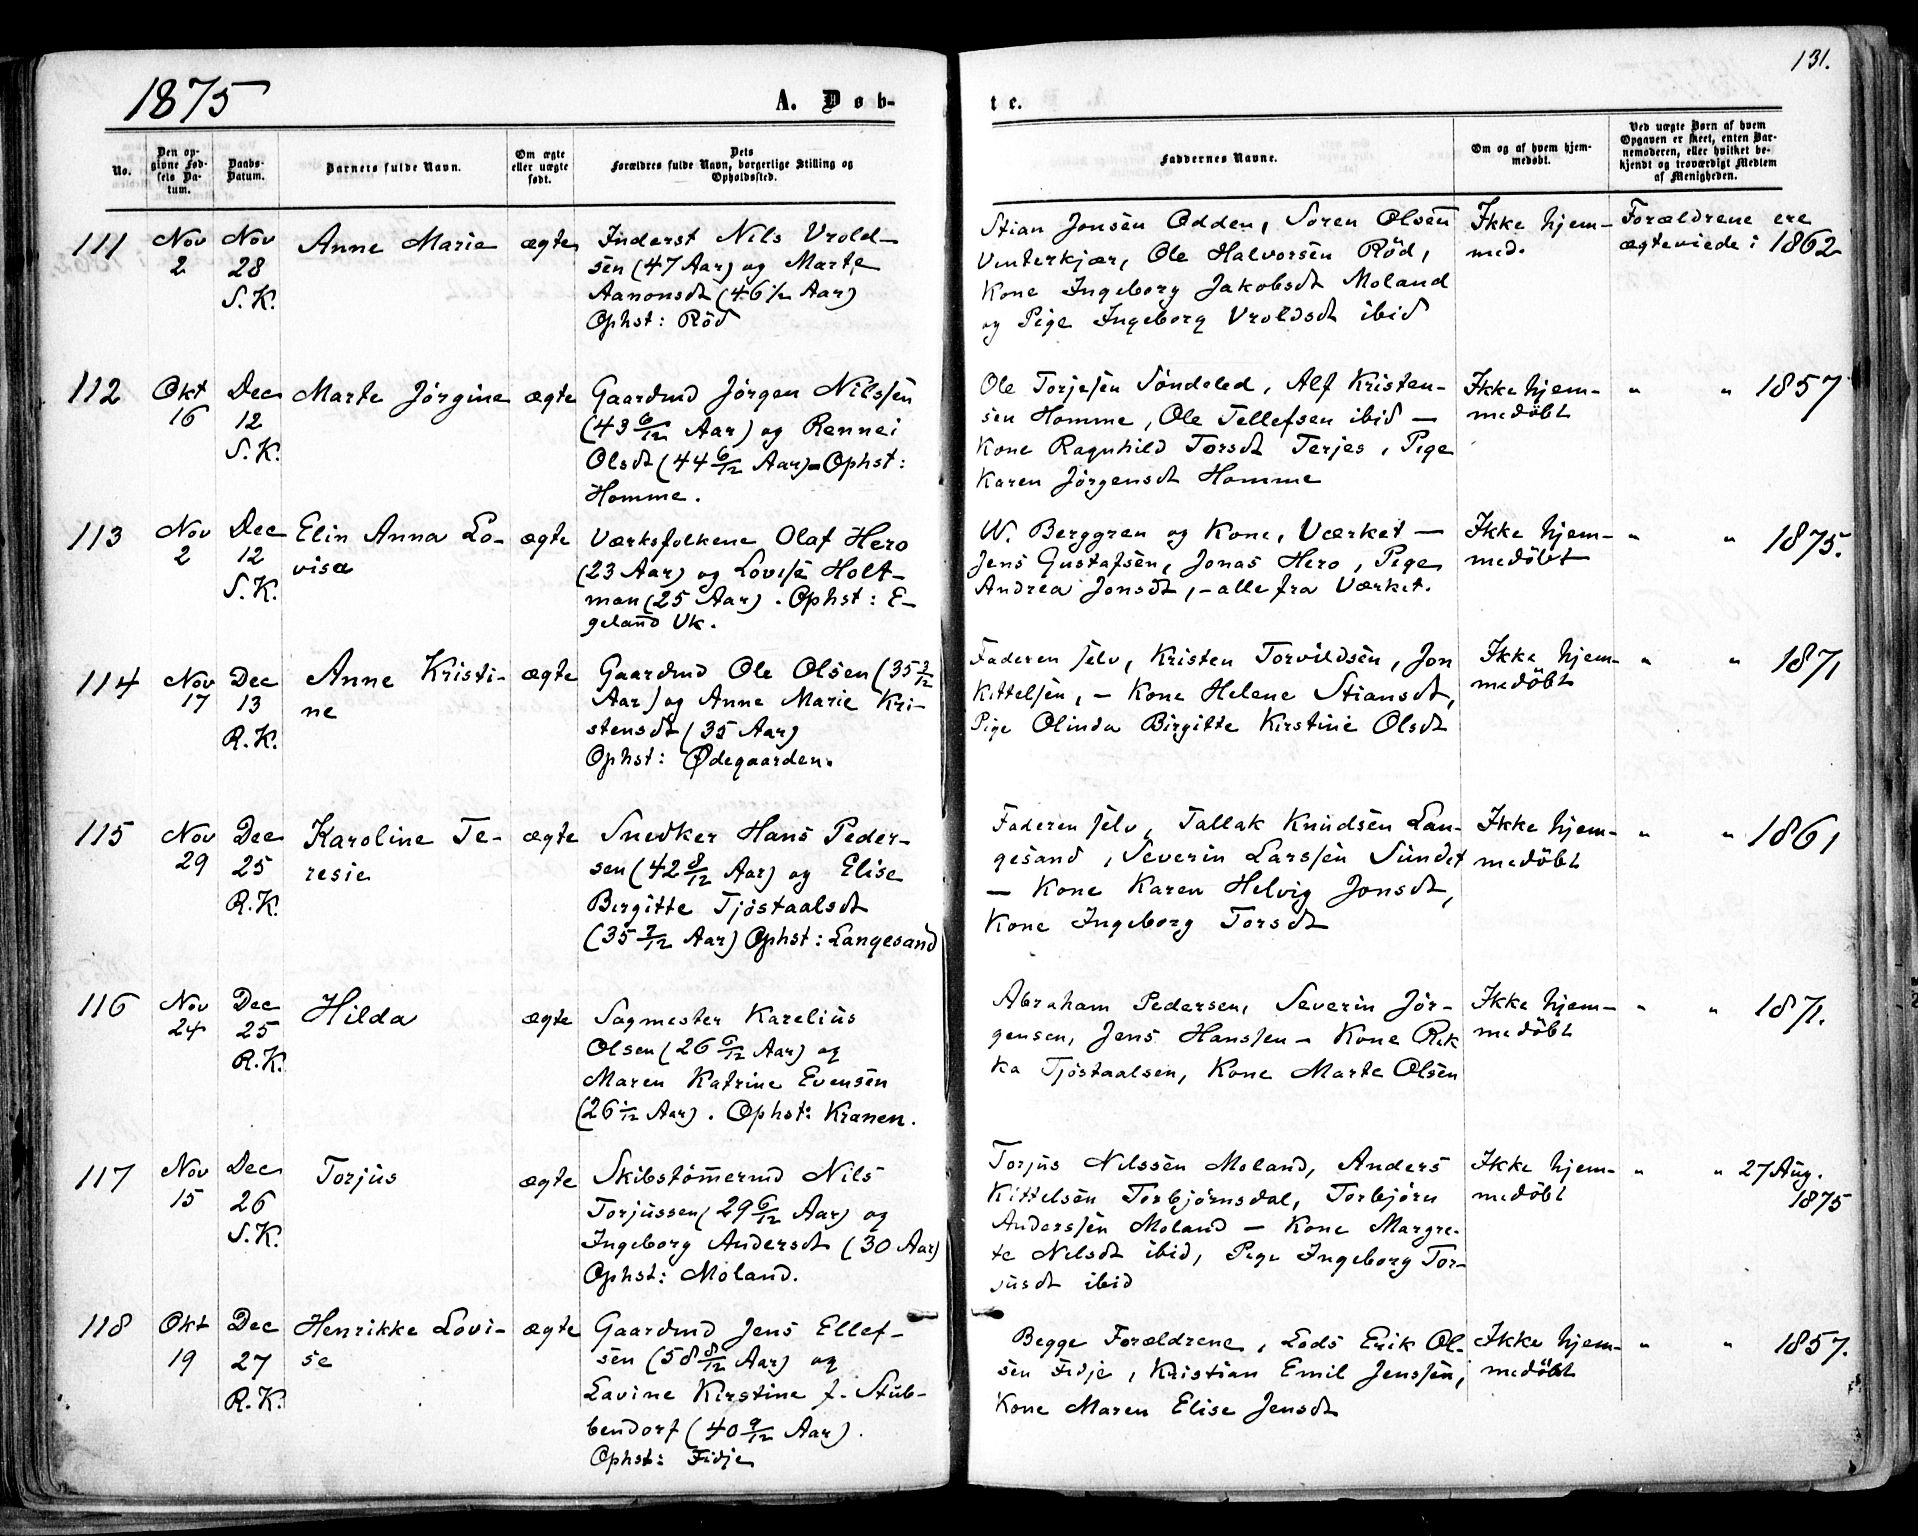 1875
A. Døb-
te.
131.
No.
Den op-
givne Fød-
sels Da-
tum.
Daabs-
Datum.
Barnets fulde Navn.
Om ægte
eller uægte
født.
Dets
Forældres fulde Navn, borgerlige Stilling og
Opholdssted.
Faddernes Navne.
Om og af hvem hjem-
medøbt.
Ved uægte Børn af hvem
Opgaven er skeet, enten Bar-
nemoderen, eller hvilket be-
kjendt og troværdigt Medlem
af Menigheden.
111
Nov
2
Nov
28
S. K.
Anne Marie
ægte
Inderst Nils Vrold-
sen (47 Aar) og Marte
Aanonsdt (46 1/2 Aar)
Ophst: Röd
Stian Jonsen Odden, Sören Olsen
Vinterkjær, Ole Halvorsen Röd,
Kone Ingeborg Jakobsdt Moland
og Pige Ingeborg Vroldsdt ibid
Ikke hjem-
med.
Forældrene ere
ægteviede i 1862
112
Okt
16
Dec
12
S. K.
Marte Jørgine
ægte
Gaardmd Jørgen Nilssen
(43 6/12 Aar) og Rennei
Olsdt (44 6/12 Aar) - Ophst:
Homme.
Ole Torjesen Söndeled, Alf Kristen-
sen Homme, Ole Tellefsen ibid —
Kone Ragnhild Torsdt Terjes, Pige
Karen Jörgensdt Homme
Ikke hjem-
medöbt
" " 1857
113
Nov
2
Dec
12
S. K.
Elin Anna Lo-
visa
ægte
Værksfolkene Olaf Hero
(23 Aar) og Lovise Holt-
man (25 Aar). Ophst: E-
geland Vk.
W. Berggren og Kone, Værket —
Jens Gustafsen, Jonas Hero, Pige
Andrea Jonsdt, - alle fra Værket.
Ikke hjem-
medöbt
" " 1875.
114
Nov
17
Dec
13
R. K.
Anne Kristi-
ne
ægte
Gaardmd Ole Olsen (35 3/12
Aar) og Anne Marie Kri-
stensdt (35 Aar)
Ophst: Ødegaarden.
Faderen selv, Kristen Torvildsen, Jon
Kittelsen, - Kone Helene Stiansdt,
Pige Olinda Birgitte Kirstine Olsdt
Ikke hjem-
medöbt
" " 1871
115
Nov
29
Dec
25
R. K.
Karoline Te-
resie
ægte
Snedker Hans Peder-
sen (42 8/12 Aar) og Elise
Birgitte Tjöstaalsdt
(35 7/12 Aar) Ophst: Langesand
Faderen selv, Tallak Knudsen Lan-
gesand, Severin Larssen Sundet
— Kone Karen Helvig Jonsdt,
Kone Ingeborg Torsdt
Ikke hjem-
medöbt
" " 1861
116
Nov
24
Dec
25
R. K.
Hilda
ægte
Sagmester Karelius
Olsen (26 6/12 Aar) og
Maren Katrine Evensen
(26 1/12 Aar). Ophst: Kranen.
Abraham Pedersen, Severin Jör-
gensen, Jens Hanssen - Kone Rik
ka Tjöstaalsen, Kone Marte Olsen
Ikke hjem-
medöbt
" " 1871.
117
Nov
15
Dec
26
S. K.
Torjus
ægte
Skibstömermd Nils
Torjussen (29 6/12 Aar) og
Ingeborg Andersdt (30 Aar)
Ophst: Moland.
Torjus Nilssen Moland, Anders
Kittelsen Torbjörnsdal, Torbjörn
Anderssen Moland — Kone Margre-
te Nilsdt ibid, Pige Ingeborg Tor-
jusdt ibid
Ikke hjem-
medöbt
" " 27 Aug.
1875
118
Okt
19
Dec
27
R. K.
Henrikke Lovi-
se
ægte
Gaardmd Jens Ellef-
sen (58 8/12 Aar) og
Lavine Kirstine f. Stub-
bendorf (40 9/12 Aar).
Ophst: Fidje
Begge Forældrene, Lods Erik Ol-
sen Fidje, Kristian Emil Jenssen,
Kone Maren Elise Jensdt
Ikke hjem-
medöbt
" " 1857.